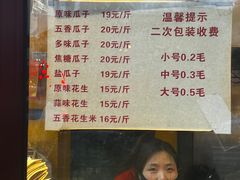 原味瓜子 19元/斤
五香瓜子 20元/斤
多味瓜子 20元/斤
焦糖瓜子 20元/斤
盐瓜子 19元/斤
原味花生 15元/斤
蒜味花生 15元/斤
五香花生米 16元/斤
温馨提示
二次包装收费
小号0.2毛
中号0.3毛
大号0.5毛